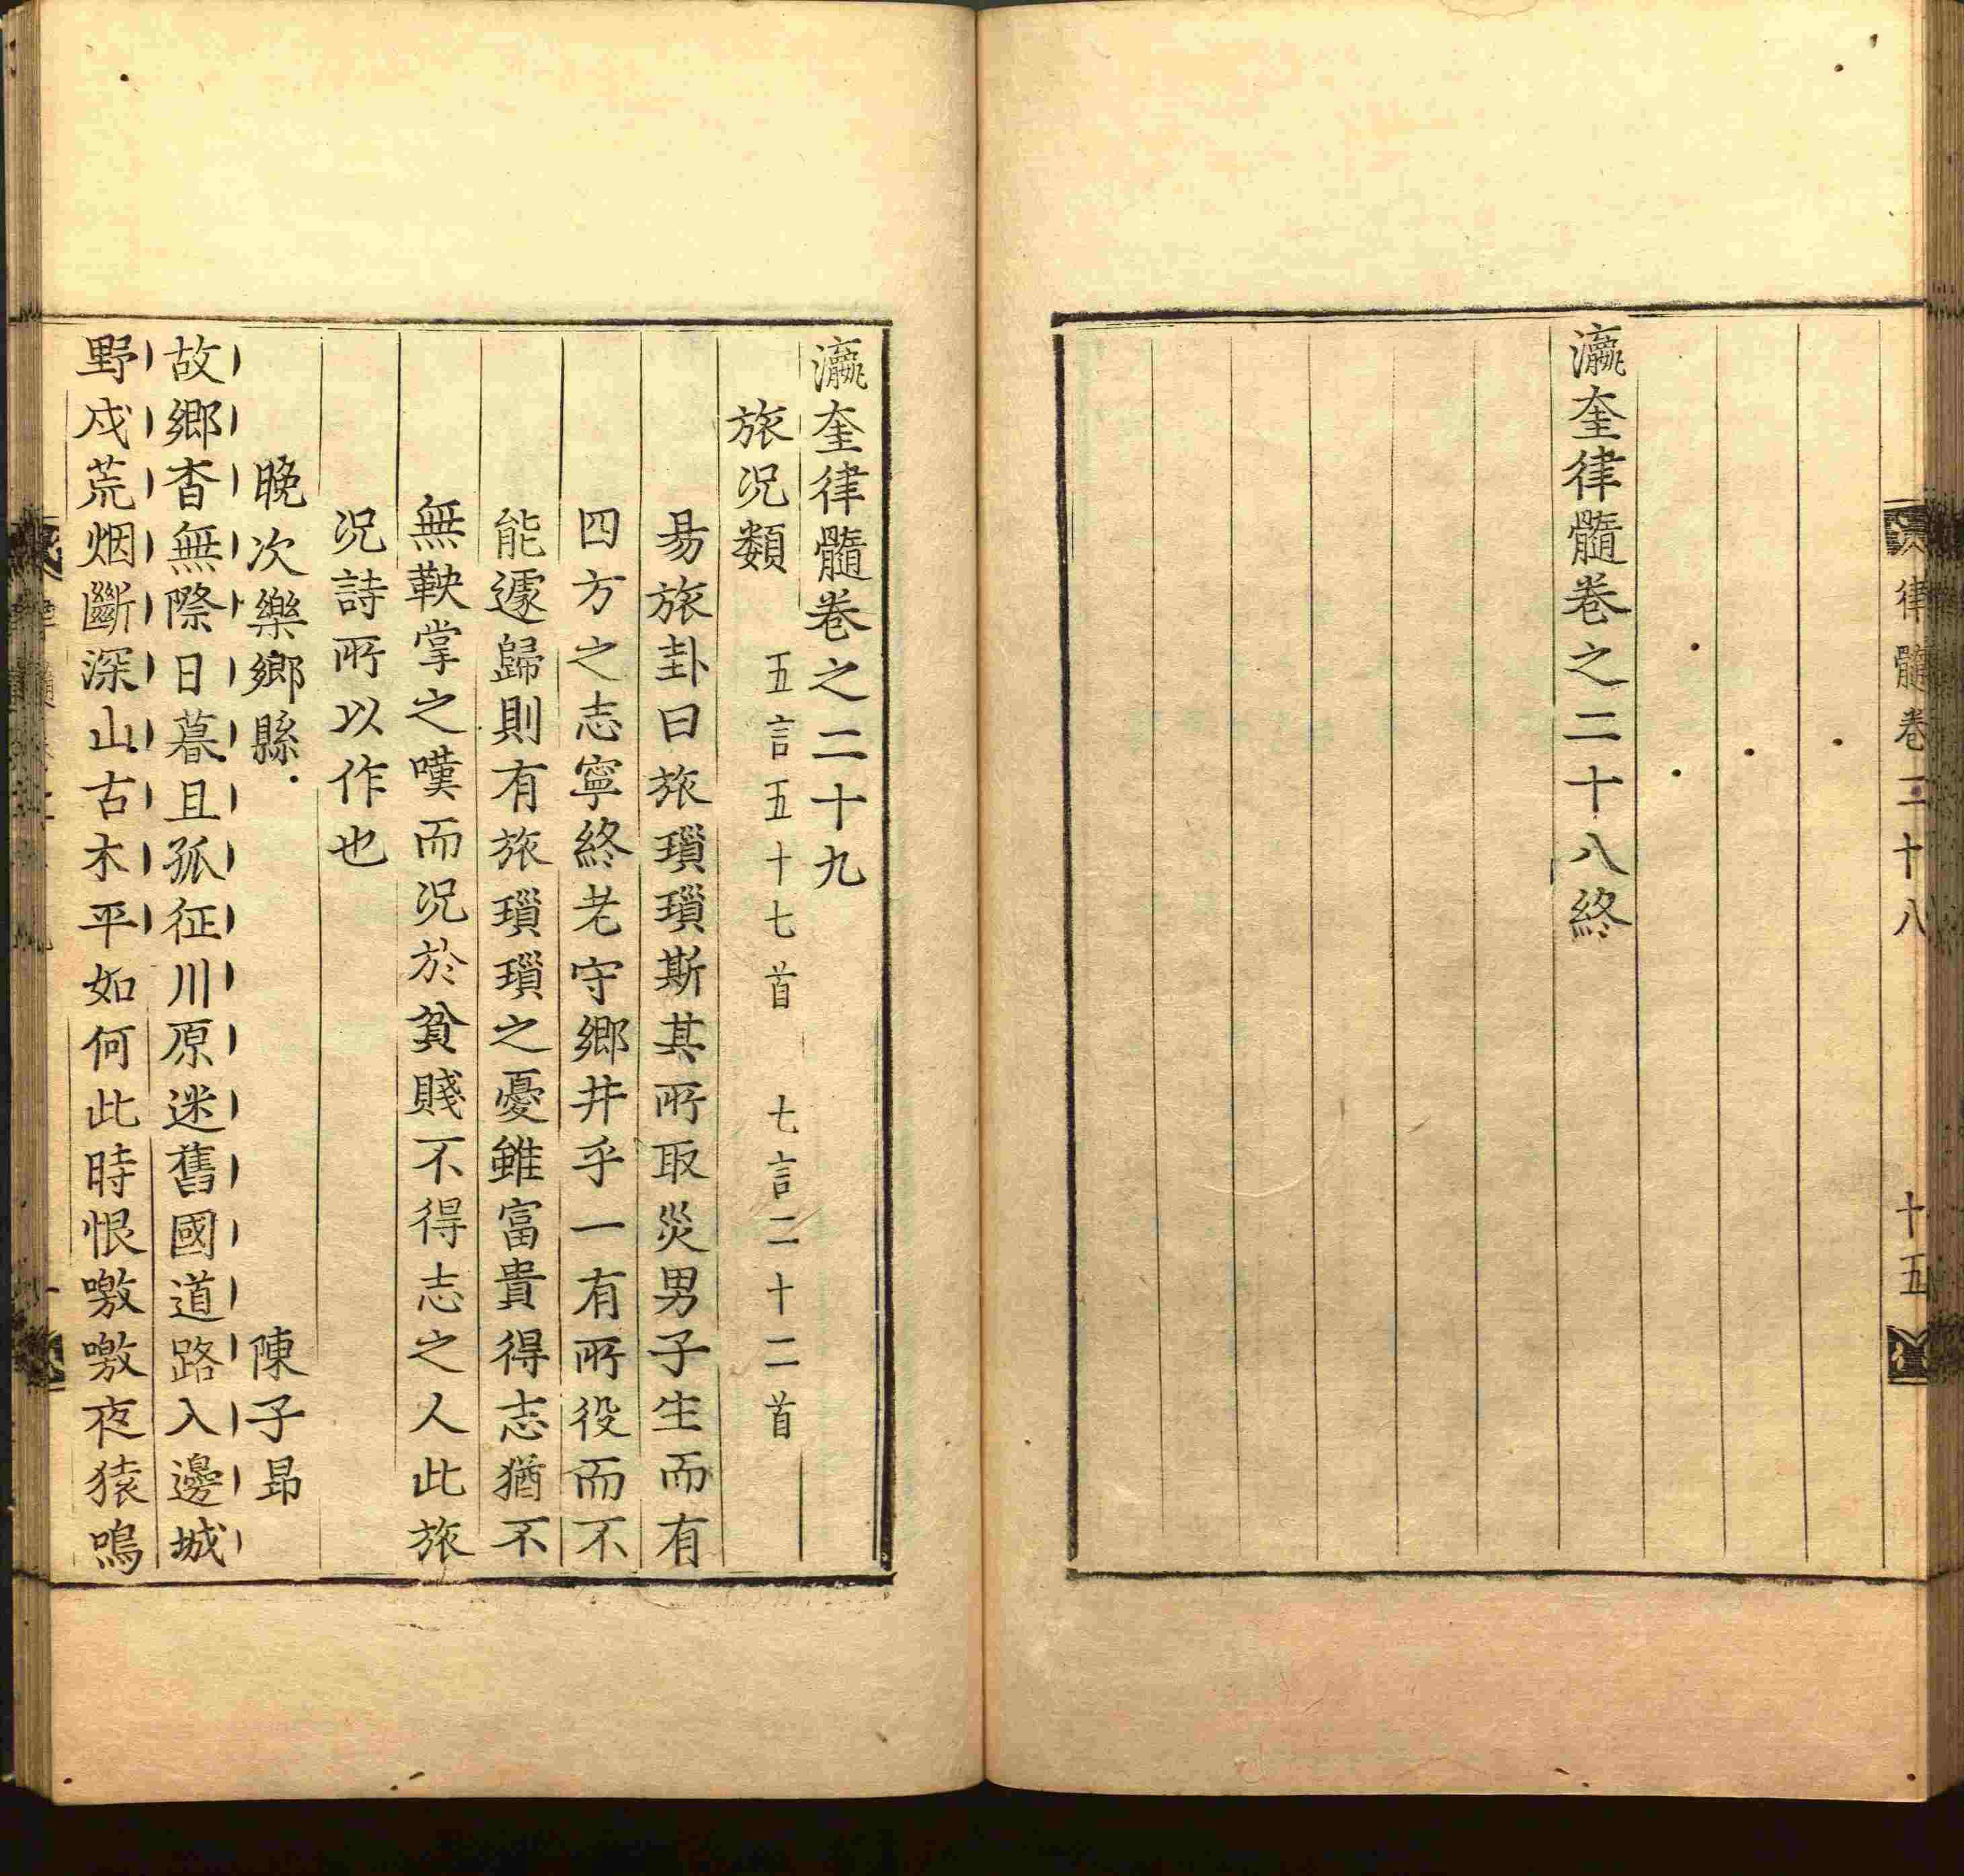 律髓卷二十八 十五
瀛奎律髓卷之二十八終
瀛奎律髓卷之二十九
旅況類 五言五十七首 七言二十二首
易旅卦曰旅瑣瑣斯其所取災男子生而有
四方之志寧終老守鄉井乎一有所役而不
能遽歸則有旅瑣瑣之憂雖富貴得志猶不
無鞅掌之嘆而況於貧賤不得志之人此旅
況詩所以作也
晚次樂鄉縣 陳子昻
故鄉杳無際日暮且孤征川原迷舊國道路入邊城
野戍荒烟斷深山古木平如何此時恨噭噭夜猿鳴